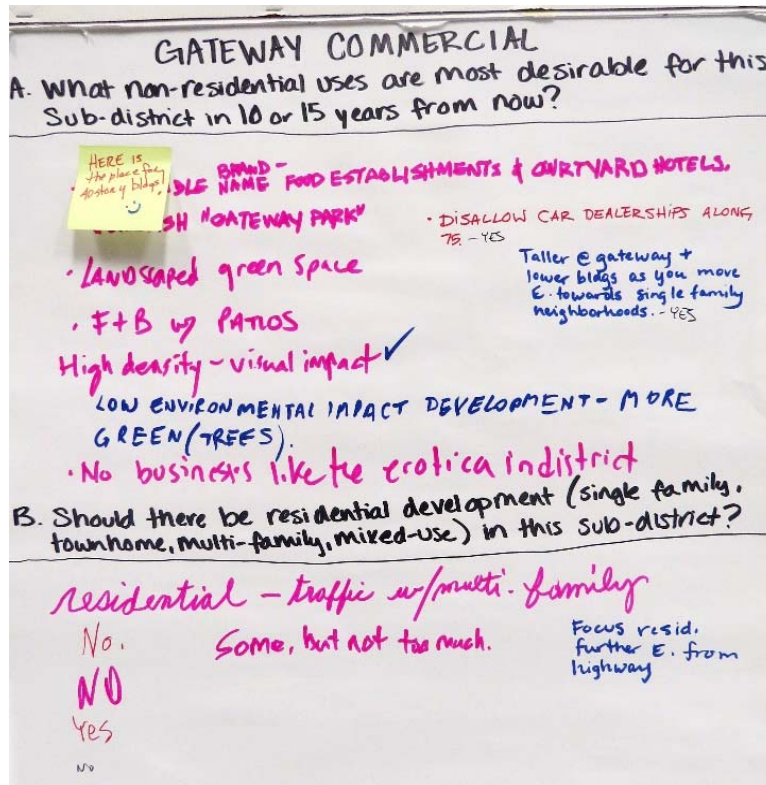 GATEWAY COMMERCIAL
A. What non-residential uses are most desirable for this
Sub-district in 10 or 15 years from now?
HERE IS
the place for
40 story bldgs!
BRAND-
DLE NAME FOOD ESTABLISHMENTS & OURTYARD HOTELS.
SH "GATEWAY PARK"
• DISALLOW CAR DEALERSHIPS ALONG
75. - YES
• LANDSCAPED green Space
Taller @ gateway +
lower bldgs as you move
E. towards single family
neighborhoods. - YES
• F+B w/ PATIOS
High density - visual impact ✓
LOW ENVIRONMENTAL IMPACT DEVELOPMENT - MORE
GREEN (TREES).
• No business like the erotica in district
B. Should there be residential development (single family,
townhome, multi-family, mixed-use) in this sub-district?
residential - traffic w/ multi-family
No.
Some, but not too much.
Focus resid.
further E. from
highway
NO
Yes
NO